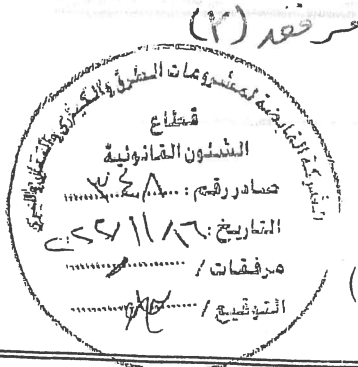 مرفق (٣)
الشركة القابضة لمشروعات الطرق والكباري والنقل البري
قطاع
الشئون القانونية
صادر رقم: ٣٤٨
التاريخ: ١٦/ ١١/ ٢٠٢٢
مرفقات /
التوقيع /